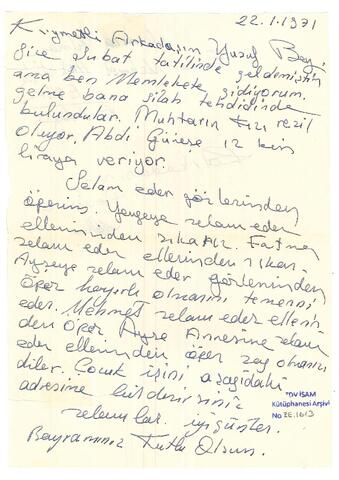 22.1.1971
Kıymetli Arkadaşım Yusuf Bey,
Size şubat tatilinde geldemiştin
ama ben Memlekete gidiyorum.
gelme bana silah tehdidinde
bulundular. Muhtarın kızı rezil
oluyor. Abdi Güneşe 12 bin
liraya veriyor.
Selam eder gözlerinden
öperim. Yengeye selam eder
ellerininden sıkarız. Fatma
selam eder ellerinden sıkar.
Ayşeye selam eder gözlerininden
öper hayırlı olmasını temenni
eder. Mehmet selam eder ellerin
den öper Ayşe Annesine selam
eder ellerinden öper sağ olmasını
diler. Çocuk işini aşağıdaki
adresine bildirirsiniz
selamlar. iyi günler.
Bayramınız Kutlu Olsun.
TDV İSAM
Kütüphanesi Arşivi
No ZE.1613